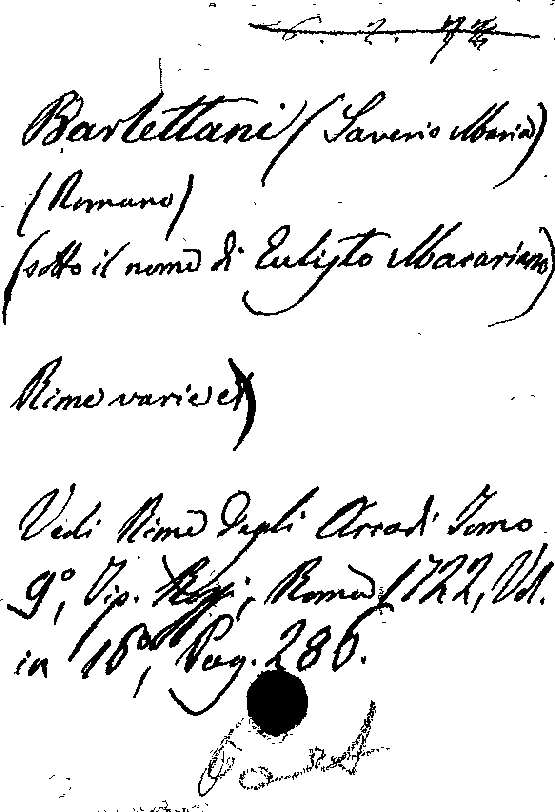 6. 2. 72
Barlettani (Saverio Maria)
(Romano)
(sotto il nome di Eulisto Macariano)
Rime varie
Vedi Rime degli Arcadi Tomo
9º, Tip. Rossi, Roma 1722, Vol.
in 16º, Pag. 286.